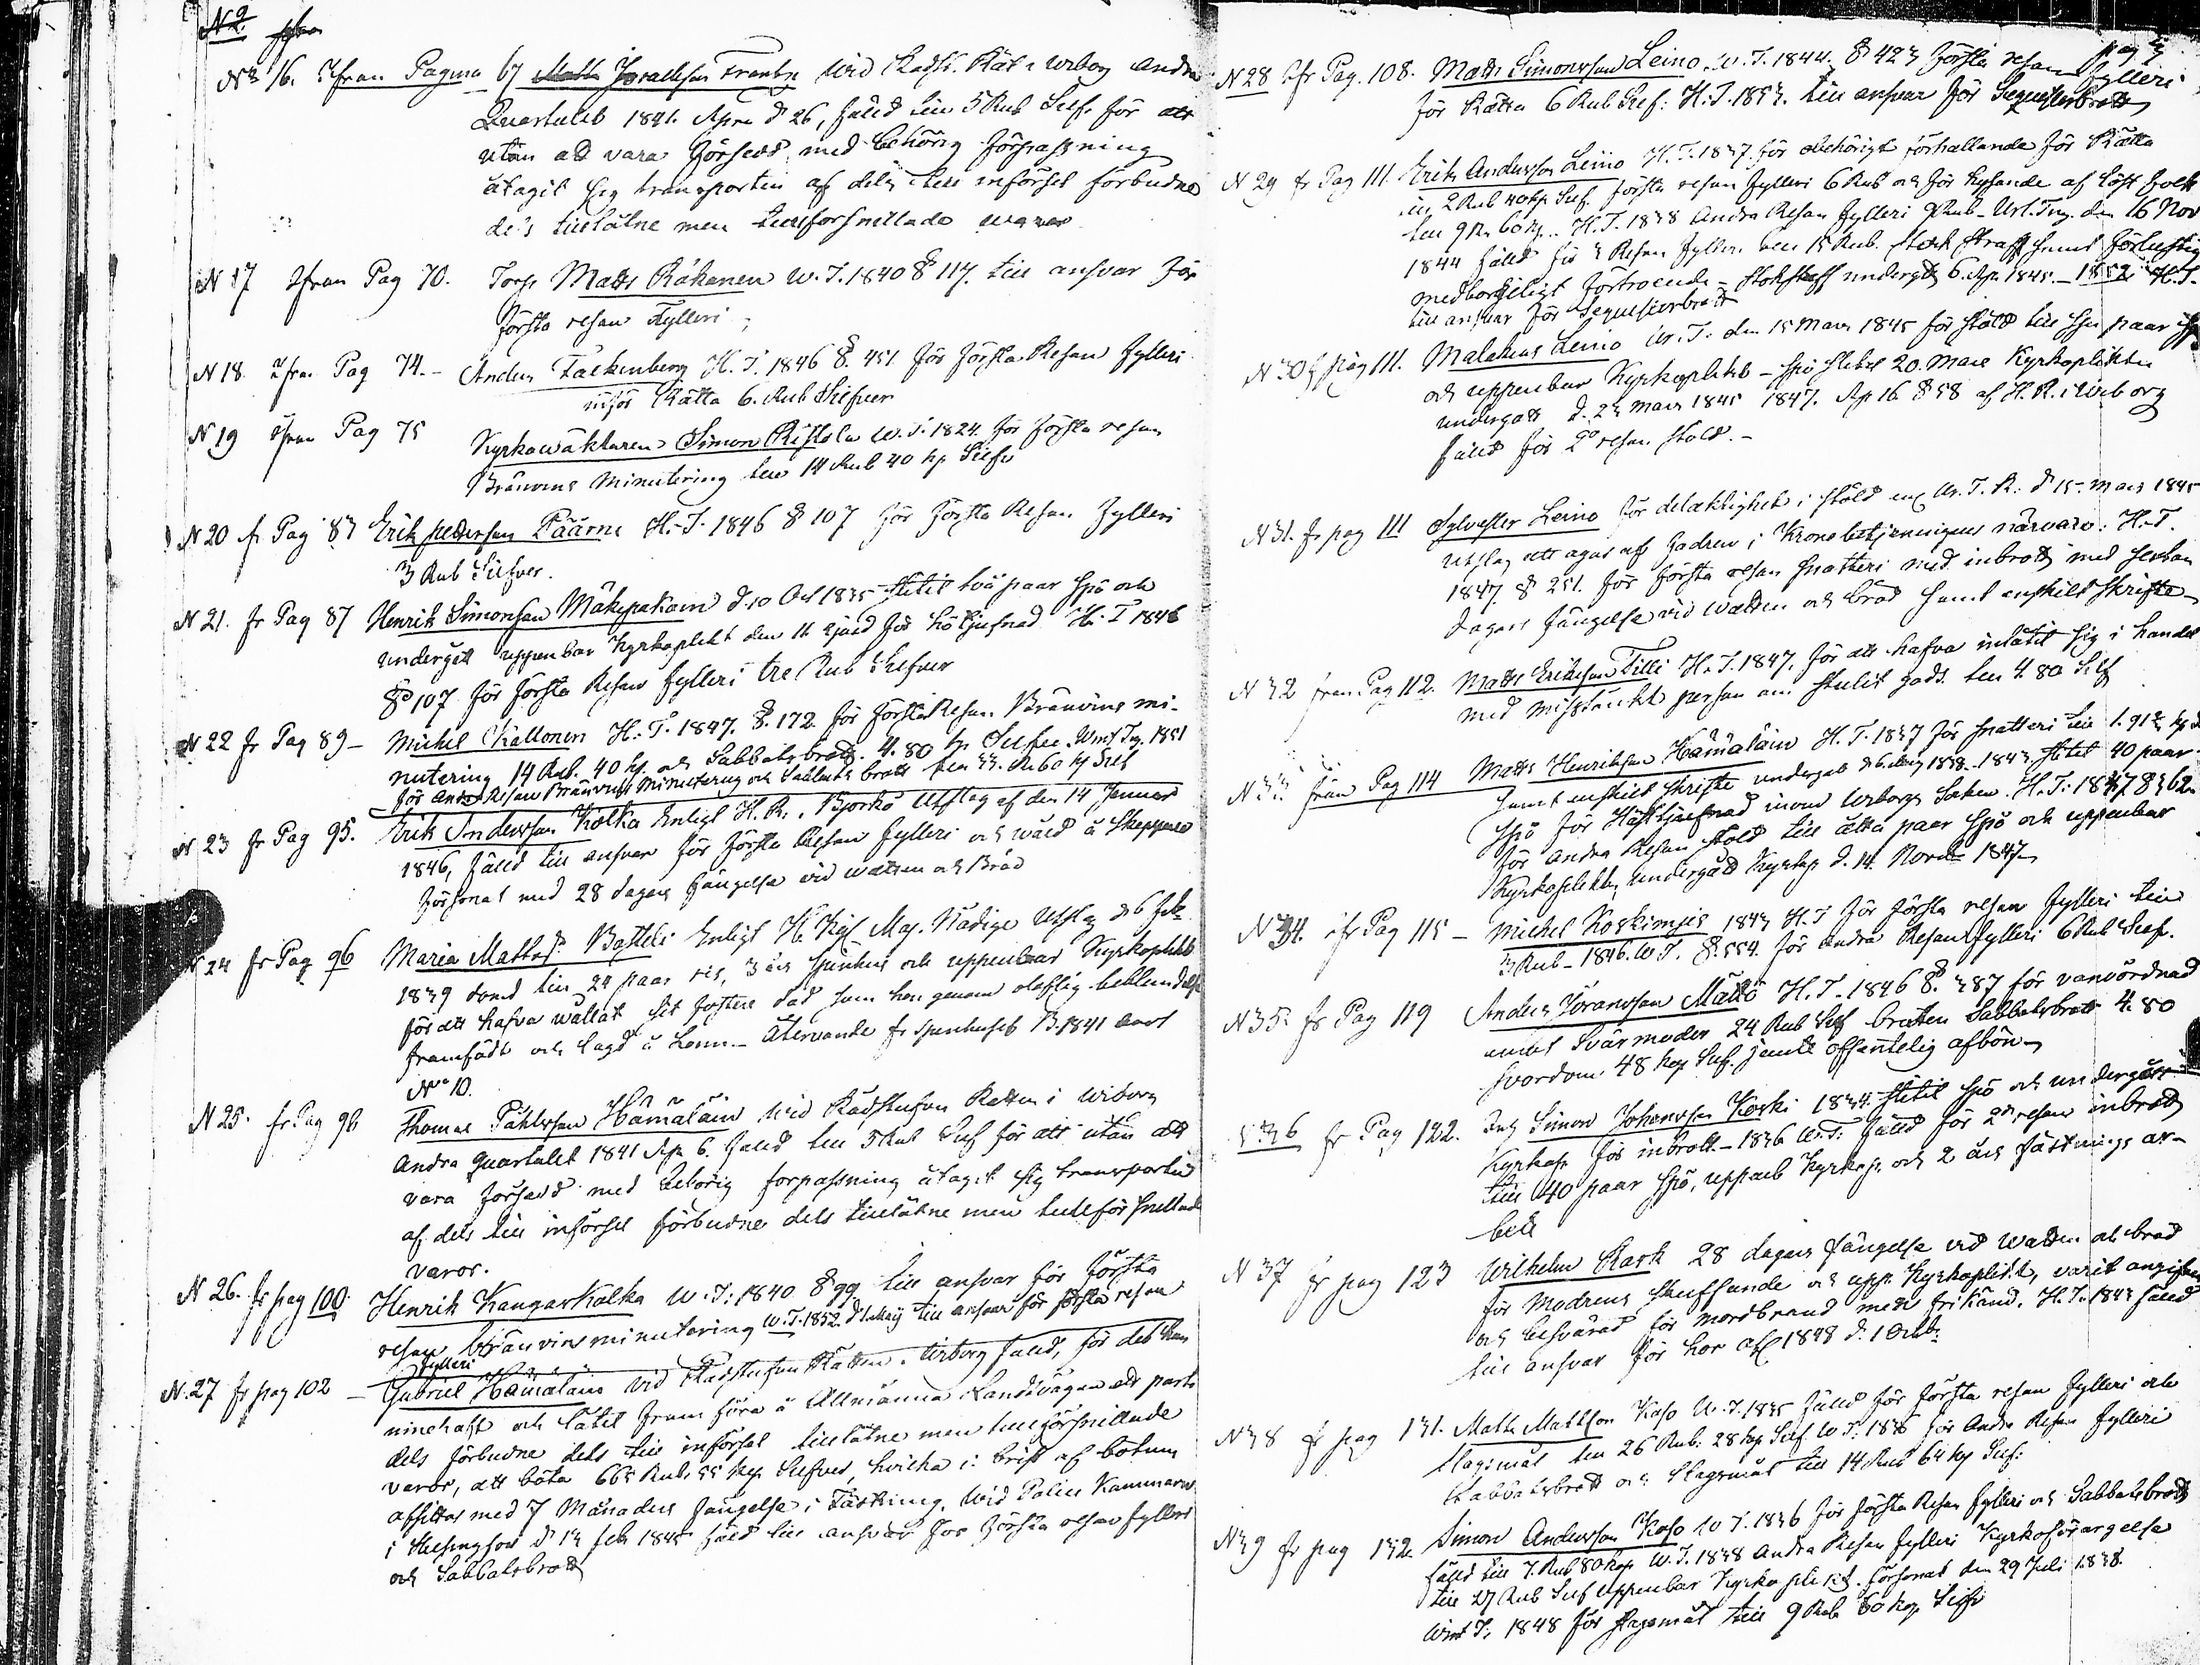 N 2
N 16. Ifrån Pagina 67 Matts Israelsson Frantz wid Rådst. Rätt i Wiborg andra
Quartalet 1841. Apr. d 26, fäld till 5 Rub Silf. för att
utan att vara försedd med behörig förpassning
åtagit sig transporten af dels till införsel förbudne
dels tillåtne men tullförsnillade waror
N 17 Ifrån Pag 70. Torp. Matts Räkänen W.T. 1840 § 117. till ansvar för
första resan Fylleri
N 18. Ifrån Pag 74. - Anders Falckenberg H.T. 1846 §. 451 för första Resan fylleri
inför Rätta 6. Rub Silfver
N 19 Ifrån Pag 75 Kyrkowäktaren Simon W.T. 1824. för första resan
Bränvins minutering till 14 Rub 40 kp Silfv
N 20 fr Pag 87 Erik Pettersson Päärni H.T. 1846 § 107 för första Resan fylleri
3 Rub Silfver.
N 21. fr Pag 87 Henrik Simonsson Mäkipakain d. 10 Oct 1835 slitit två paar spö och
undergått uppenbar Kyrkoplikt den 11 för tjufnad H.T 1846
§ 107 för första Resan fylleri tre Rub Silfver
N 22 fr Pag 89 - Michel Kallonen H.T. 1847. §. 172. för första Resan Bränvins mi-
nutering 14 Rub. 40 kp. och Sabbatsbrott. 4. 80 kp Silfver. Wint Tng. 1851
för andra Resan Bränvins minutering och Sabbats brott till 33. R. 60 kp Silf
N 23 fr Pag 95. Erik Andersson Kolka Enligt H.R. i Björkö Utslag af den 14 Januar
1846, fäld till ansvar för första Resan fylleri och wåld å Skeppare
försonat med 28 dagars fängelse vid watten och Bröd
N 24 fr Pag 96 Maria Mattsd. Enligt H. Kejs Maj. Nådige Utslag d 6 Feb
1839 dömd till 24 paar ris, 3 års spinhus och uppenbar Kyrkoplikt
för att hafva wållat sit fosters död som hon genom oloflig beblandelse
framfödt och lagd å Lönn. - Återvände fr spinhuset B. 1841 Anvt
N° 10.
N 25. fr Pag 96 Thomas Påhlsson Hämäläin wid Rådstufvu Rätten i Wiborg
andra quartalet 1841 Ap. 6. fäld till 5 Rub Silf för att utan att
vara försedd med behörig förpassning åtagit sig transporten
af dels till införsel förbudne dels tillåtne men tullförsnillade
varor.
N 26. fr pag 100 Henrik Kangaskolka W.T. 1840 § 99 till ansvar för första
resan bränvinsminutering W.T. 1852. d 1. Maij till ansvar för första resan
fylleri
N. 27 fr pag 102 - Gabriel Hämäläin vid Rådstufvu Rätten i Wiborg fäld, för det han
innehaft och låtit fram föra å Allmänna Landsvägen ett parti
dels förbudne dels till införsel tillåtne men tullförsnillade
varor, att böta 665 Rub. 55 kop. Silfver, hvilka i brist af botum
afsittas med 7 Månaders fängelse i Fästning. Wid Polis Kammaren
i Helsingfors d 13 feb 1845 fäld till ansvar för första resan fylleri
och Sabbatsbrott
pag 3
N 28 Ifr Pag. 108. Matts Simonsson Leino. W.T. 1844. § 423 första resan fylleri
för Rätta 6 Rub Silf: H.T. 1853. till ansvar för Sequesterbrott
N 29 fr Pag 111 Erik Andersson Leino H.T. 1837. för obehörigt förhållande för Rätta
till 2 Rub 40 kp Silf. första resan fylleri 6 Rub och för hysande af löst folk
till 9 R. 60 kp.. H.T. 1838 Andra Resan fylleri 9 Rub - Url. Tng. den 16 Nov
1844 fäld för 3 Resan fylleri till 15 Rub. stock straff samt förlustig
medborgerligt förtroende - stokstraff undergått 6. Ap. 1845. - 1852 H.T.
till ansvar för Sequesterbrott
N 30 fr pag 111. Malakias Leino Ur. T. den 15 Mars 1845 för stöld till sju paar spö
och uppenbar Kyrkoplikt - spö slitet 20. Mars Kyrkoplikten
undergått d. 23 mars 1845 1847. Ap 16 § 58 af H.R. i Wiborg
fäld för 2° resan stöld. -
N 31. fr pag 111 Sylvester Leino för delaktighet i stöld enl Ur. T.R. d 15. Mars 1845
Utslag att agas af fadren i Kronobetjeningens närvaro. H.T.
1847. § 251. för första resan snatteri med inbrott med sexton
dagars fängelse vid watten och bröd samt enskilt skrifte
N 32 från Pag 112. Matts Eriksson Tilli H.T. 1847. för att hafva inlåtit sig i handel
med misstänkt person om stulit gods. till 4. 80 Silf
N 33 från Pag 114 Matts Henriksson Hämäläin H.T. 1837 för snatteri till 1. 91 kp
samt enskilt skrifte undergått d 6. 1838. - 1843 slitit 40 paar
spö för Hästtjufnad inom Wiborgs Socken. H.T: 1847 § 362.
för andra Resan stöld till åtta paar spö och uppenbar
Kyrkoplikt, undergått Kyrkop. d. 14. Novemb 1847.
N 34. fr Pag 115 - Michel Koskimies 1843 H.T för första resan fylleri till
3 Rub - 1846. W.T. §. 554. för andra Resan fylleri 6 Rub Silf.
N 35. fr Pag 119 Anders Göransson Mättö H.T. 1846 §. 387 för vanvördnad
emot Svärmoder 24 Rub Silf bruten Sabbatsbrott 4. 80
svordom 48 kop Silf. jemte offentelig afbön
N 36 fr Pag 122. Simon Johansson Koski 1834. slitit spö och undergått
Kyrkop. för inbrott. - 1836 W.T: fäld för 2 resan inbrott
till 40 paar spö, uppenb Kyrkop. och 2 års fästnings ar-
bete
N 37 fr pag 123 Wilhelm Stark 28 dagars fängelse vid watten och bröd
för Modrens skuffande och upp. Kyrkoplikt, varit angifven
och besvärad för mordbrand men frikänd. H.T. 1843 fäld
till ansvar för hor 1848 d: 1 Octob:
N 38 fr pag 131. Matts Mattson Kaso W.T. 1835 fäld för första resan fylleri och
slagsmål till 26 Rub. 28 kop Silf W.T. 1836 för Andra Resan fylleri
Sabbatsbrott och slagsmål till 14 Rub 64 kp Silf:
N 39 fr pag 132 Simon Andersson Kaso W.T. 1836 för första Resan fylleri och Sabbatsbrott
fäld till 7. Rub 80 kop W.T. 1838 Andra Resan fylleri Kyrkoförargelse
till 27 Rub Silf uppenbar Kyrkoplikt. försonat den 29 Juli 1838.
Wint T. 1848 för slagsmål till 9 Rub 60 kop Silfv